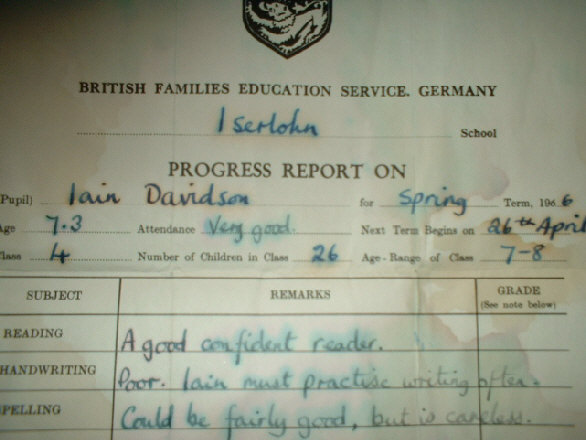 BRITISH FAMILIES EDUCATION SERVICE. GERMANY
Iserlohn School
PROGRESS REPORT ON
Pupil) Iain Davidson for Spring Term, 1966
Age 7.3 Attendance Very good. Next Term Begins on 26th April
Class 4 Number of Children in Class 26 Age-Range of Class 7-8
SUBJECT REMARKS GRADE
(See note below)
READING A good confident reader.
HANDWRITING Poor. Iain must practise writing often.
SPELLING Could be fairly good, but is careless.